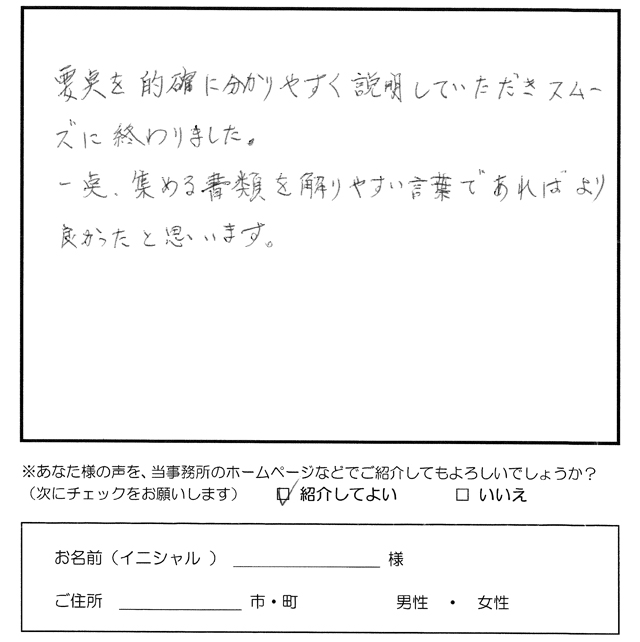 要点を的確に分かりやすく説明していただきスムー
ズに終わりました。
一点、集める書類を解りやすい言葉であればより
良かったと思います。
※あなた様の声を、当事務所のホームページなどでご紹介してもよろしいでしょうか？
（次にチェックをお願いします） ☑ 紹介してよい □ いいえ
お名前（イニシャル ） ＿＿＿＿＿＿＿＿ 様
ご住所 ＿＿＿＿＿＿＿ 市・町 男性 ・ 女性